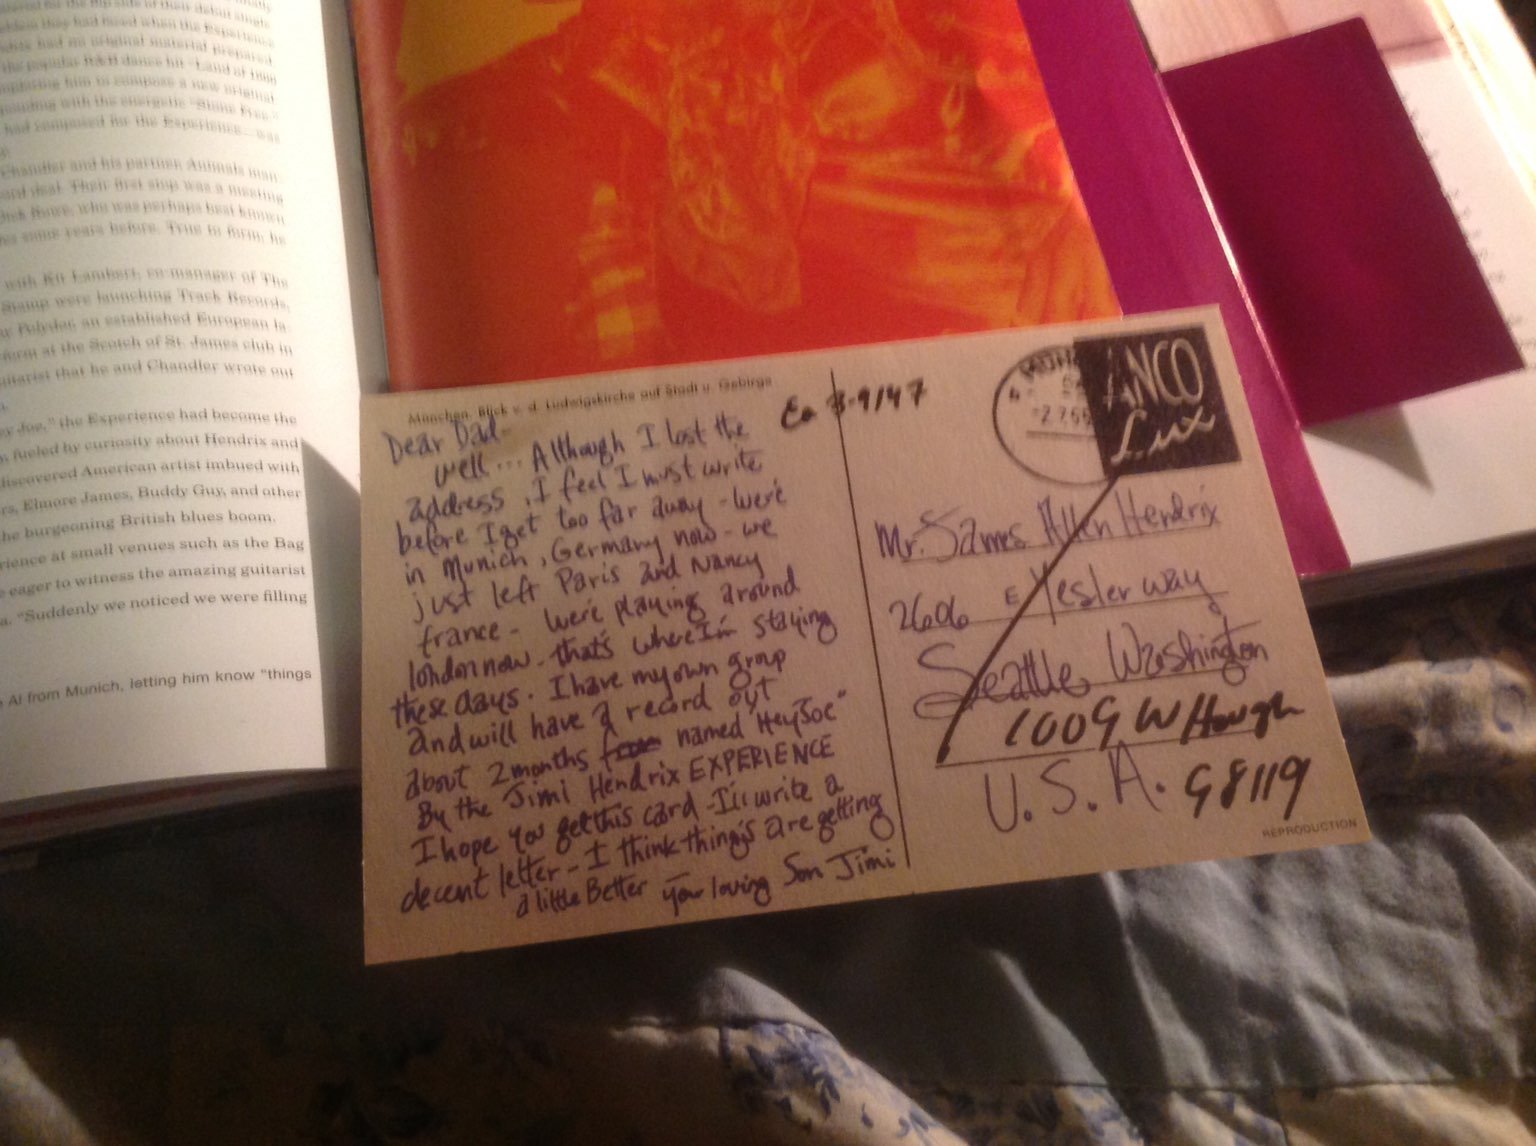 for the flip side of their debut single
had when the Experience
had no original material prepared.
the popular R&B dance hit "Land of 1000
him to compose a new original
with the energetic "Stone Free,"
had composed for the Experience—was
Chandler and his partner, Animals man-
deal. Their first stop was a meeting
Rowe, who was perhaps best known
some years before. True to form, he
with Kit Lambert, co-manager of The
Stamp were launching Track Records,
Polydor, an established European la-
form at the Scotch of St. James club in
guitarist that he and Chandler wrote out
Joe," the Experience had become the
fueled by curiosity about Hendrix and
discovered American artist imbued with
Elmore James, Buddy Guy, and other
the burgeoning British blues boom.
at small venues such as the Bag
eager to witness the amazing guitarist
"Suddenly we noticed we were filling
Al from Munich, letting him know "things
München. Blick v. d. Ludwigskirche auf Stadt u. Gebirge
Dear Dad-
well... Although I lost the
address, I feel I must write
before I get too far away - we're
in Munich, Germany now - we
just left Paris and Nancy
france - we're playing around
london now. that's where I'm staying
these days. I have my own group
and will have a record out
about 2 months named "Hey Joe"
By the Jimi Hendrix EXPERIENCE
I hope you get this card - I'll write a
decent letter - I think thing's are getting
a little Better
Your loving Son Jimi
ANCO
Lux
Mr. James Allen Hendrix
2606 E Yesler Way
Seattle, Washington
1009 W Howgh
U.S.A. 98119
REPRODUCTION